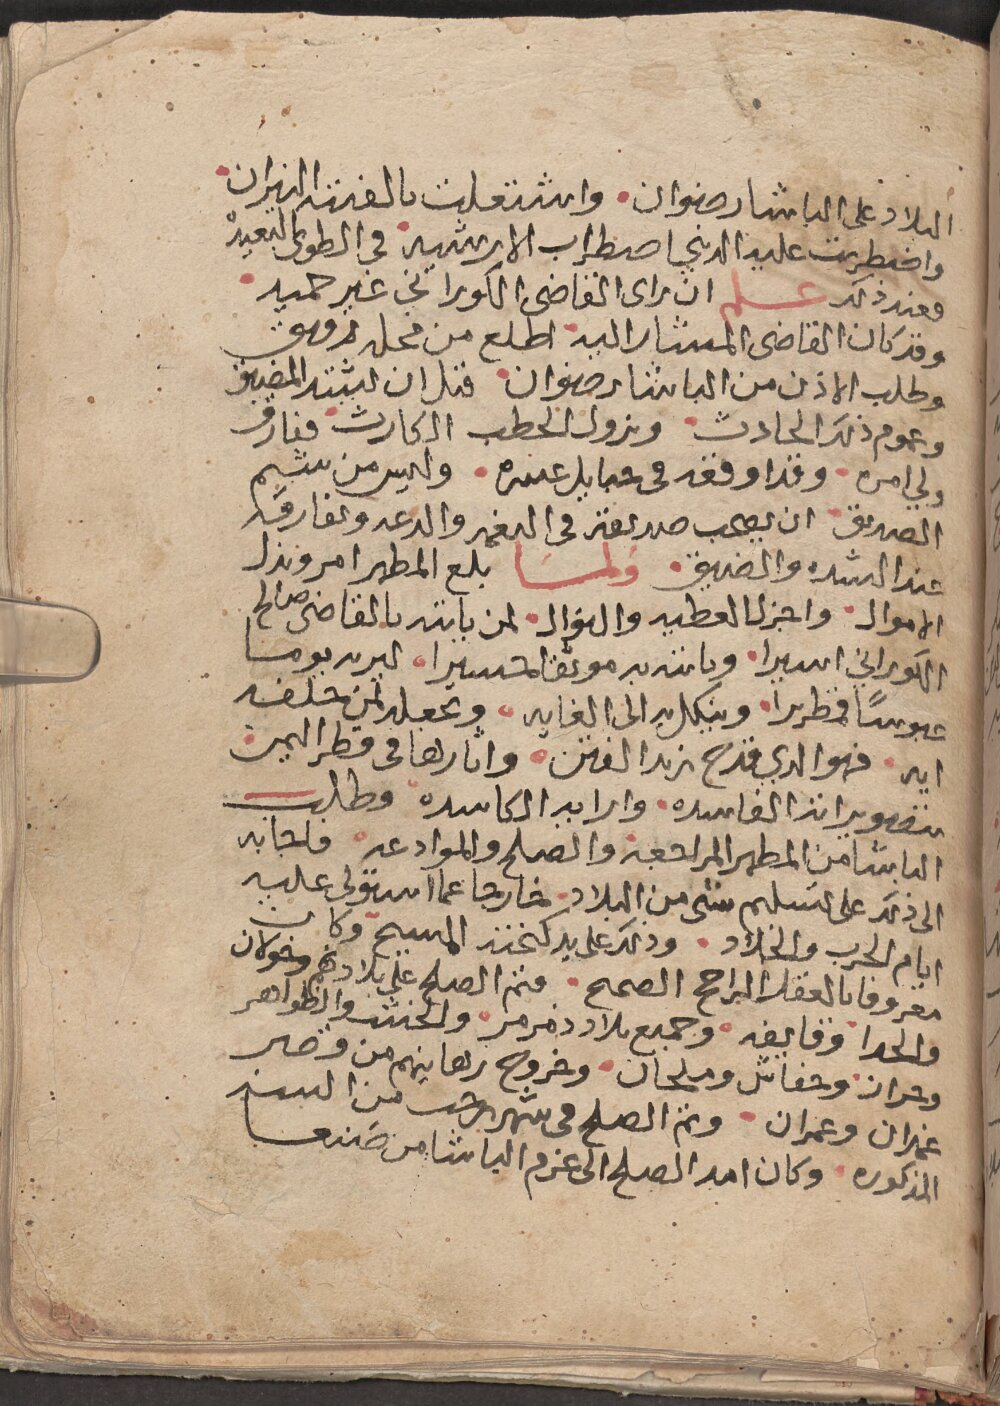 البلاد على الباشا رضوان • واشتعلت بالفتنه النيران •
واضطربت عليه الدنيا اضطراب الارشيه • في الطوى البعيد
وعند ذلك علم ان راى القاضى الكوراني غير حميد •
وقد كان القاضى المشار اليه اطلع من محله
وطلب الاذن من الباشا رضوان • قبل ان يشتد المضيق
وعموم ذلك الحادث • ونزول الخطب الكارث • ففارق
ولي امره • وقد اوقعه في حبايل عسره • وليس من شيم
الصديق • ان يصحب صديقه في النعمه والدعه ويفارقه
عند الشده والضيق • ولما بلغ المطهر امر وبذل
الاموال • واجزل العطيه والنوال • لمن ياتيه بالقاضى صالح
الكوراني اسيرا • وياتيه به موثقا حسيرا • ليريه يوما
عبوسا قمطريرا • وينكل به الى الغايه • ويجعله لمن خلفه
ايه • فهو الذي قدح زند الفتن • واثارها في قطر اليمن •
بتصويراته الفاسده • وارايه الكاسده • وطلب
الباشا من المطهر المراجعه والصلح والموادعه • فاجابه
الى ذلك على تسليم شى من البلاد • خارجا عما استولى عليه
ايام الحرب والجلاد • وذلك على يد المسيح وكان
معروفا بالعقل الراجح الصحيح • فتم الصلح على بلاد وخولان
والحدا وقايفه • وجميع بلاد ذمرمر • والخشب والظواهر
وحراز • وحفاش وملحان • وخروج رهاينهم من قصر
غمدان وعمران • وتم الصلح في شهر رجب من السنه
المذكوره • وكان امد الصلح الى عزم الباشا من صنعا